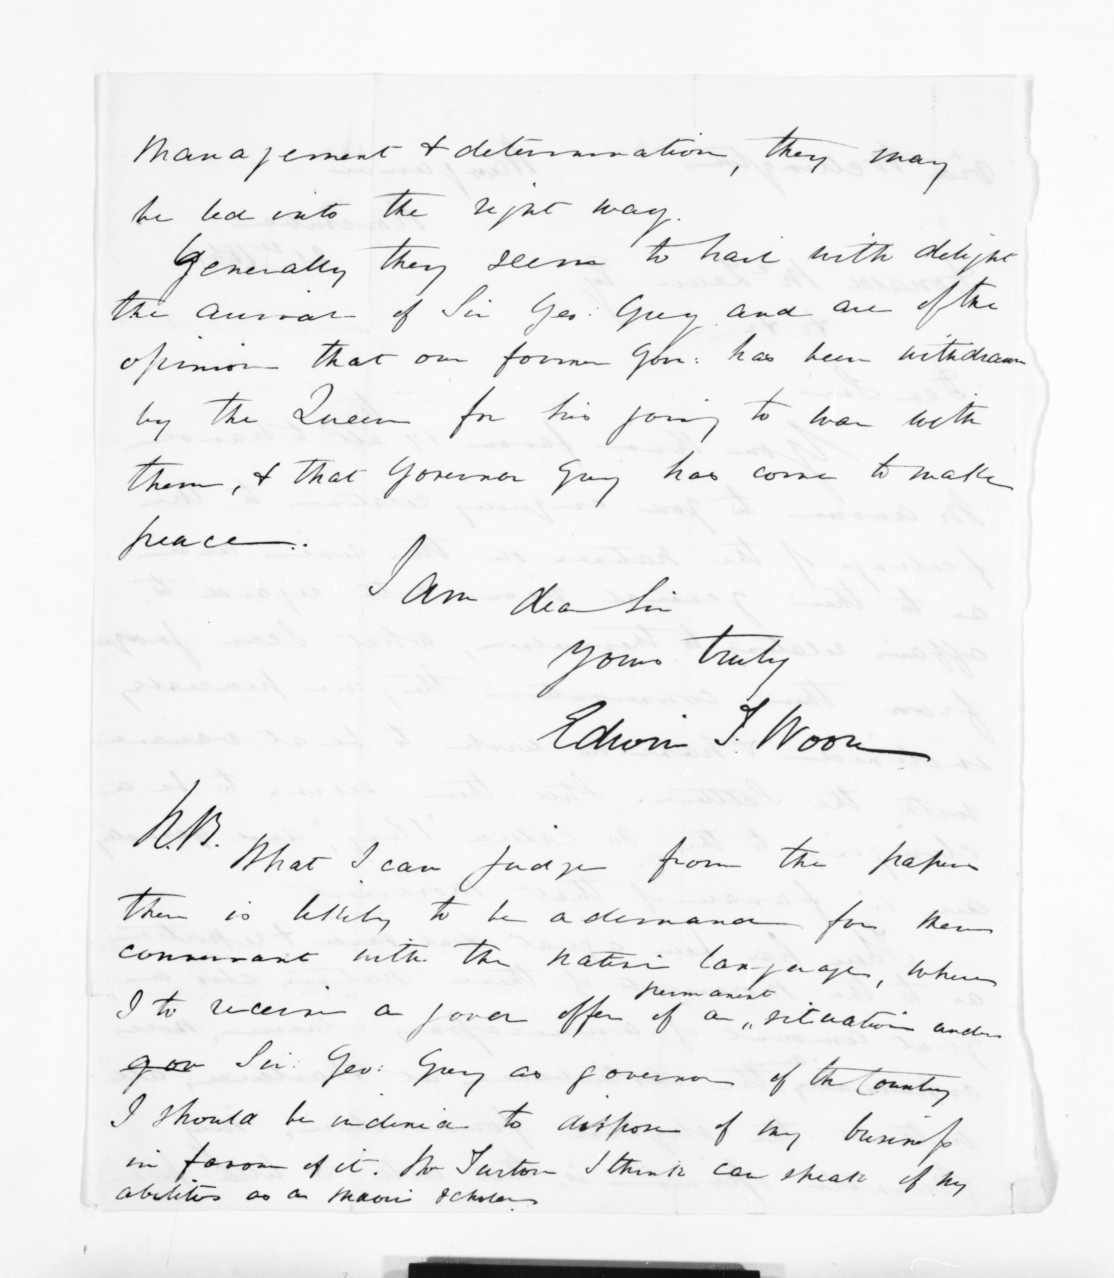 management & determination, they may
be led into the right way.
Generally they seem to hail with delight
the arrival of Sir Geo: Grey and are of the
opinion that our former Gov: has been withdrawn
by the Queen for his going to war with
them, & that Governor Grey has come to make
peace.
I am dear Sir
Yours truly
Edwin F. Woon
N.B.
What I can judge from the papers
there is likely to be a demand for men
conversant with the native language, where
I to receive a good offer of a permanent situation under
gov Sir: Geo: Grey as governor of the Country
I should be inclined to dispose of my business
in favor of it. Mr Turton I think can speak of my
abilities as a Maori scholar.